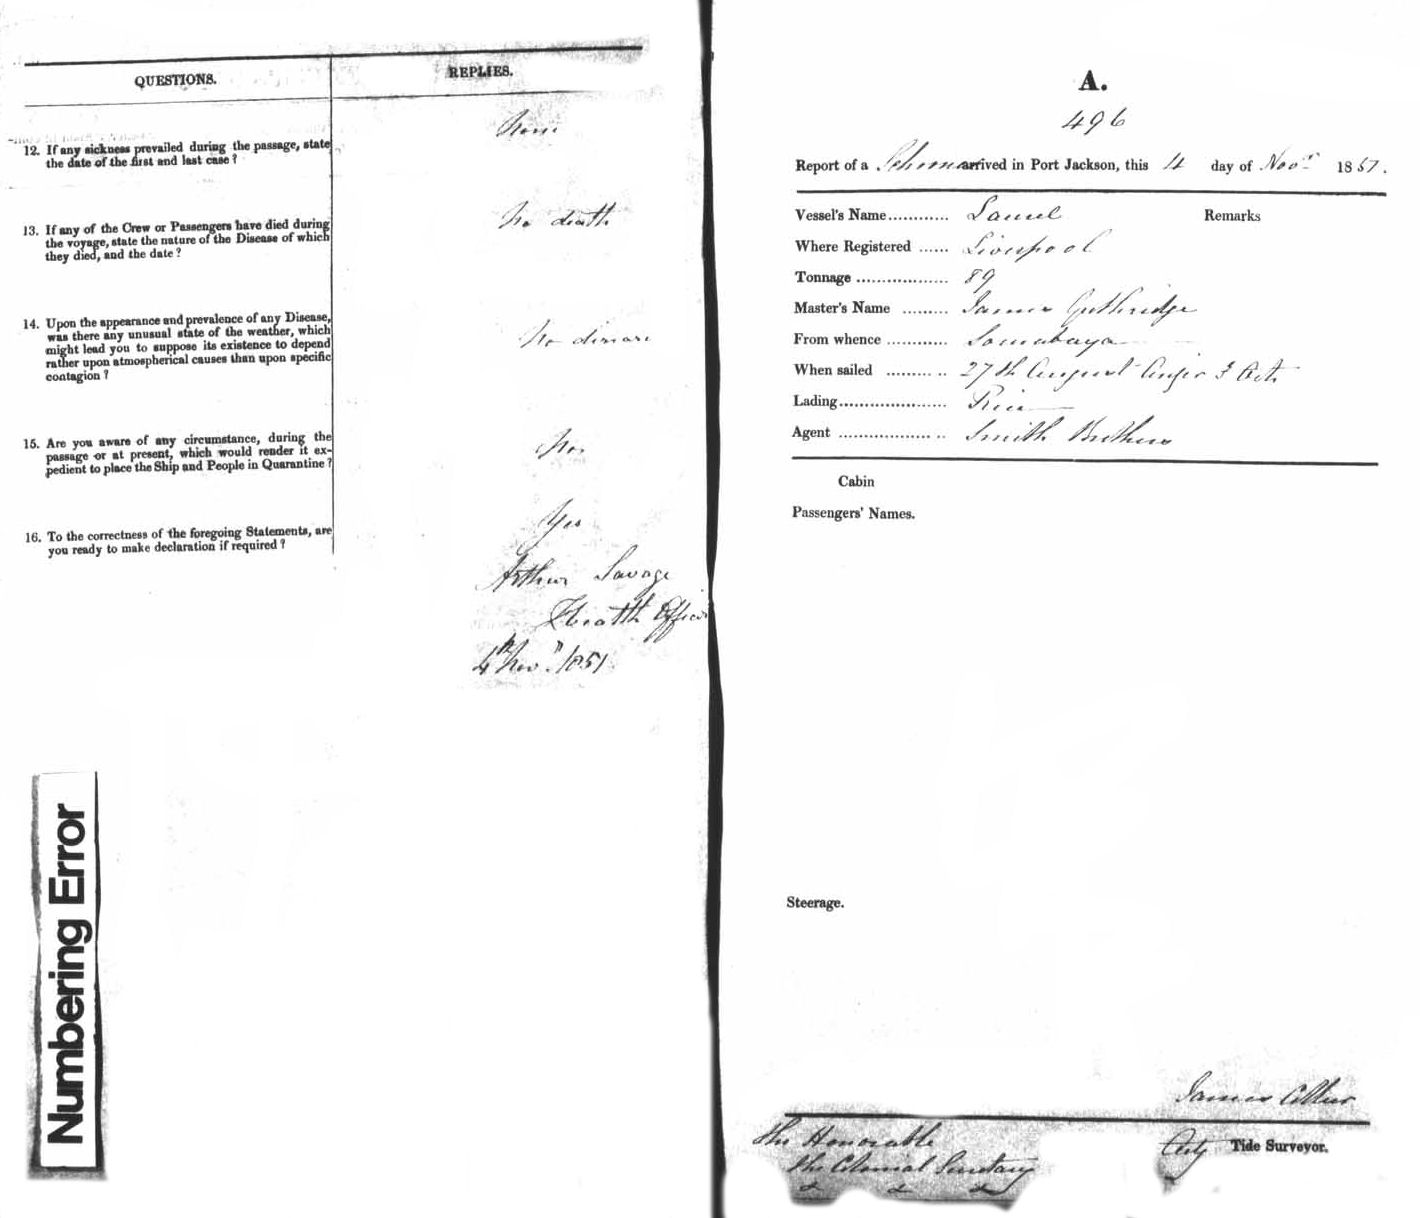 QUESTIONS.
REPLIES.
12. If any sickness prevailed during the passage, state
the date of the first and last case ?
None
13. If any of the Crew or Passengers have died during
the voyage, state the nature of the Disease of which
they died, and the date ?
No death
14. Upon the appearance and prevalence of any Disease,
was there any unusual state of the weather, which
might lead you to suppose its existence to depend
rather upon atmospherical causes than upon specific
contagion ?
No disease
15. Are you aware of any circumstance, during the
passage or at present, which would render it ex-
pedient to place the Ship and People in Quarantine ?
No
16. To the correctness of the foregoing Statements, are
you ready to make declaration if required ?
Yes
Arthur Savage
Health Officer
4th Novr. 1851
Numbering Error
A.
496
Report of a Schooner arrived in Port Jackson, this 4 day of Novr 1851.
Vessel's Name............ Laurel
Remarks
Where Registered ...... Liverpool
Tonnage .................. 89
Master's Name ......... James Guthridge
From whence ............ Sourabaya
When sailed ......... .. 27th August Anjer 3 Oct
Lading..................... Rice
Agent .................. .. Smith Brothers
Cabin
Passengers' Names.
Steerage.
James
Tide Surveyor.
The Honorable
the Colonial Secretary
&c &c &c